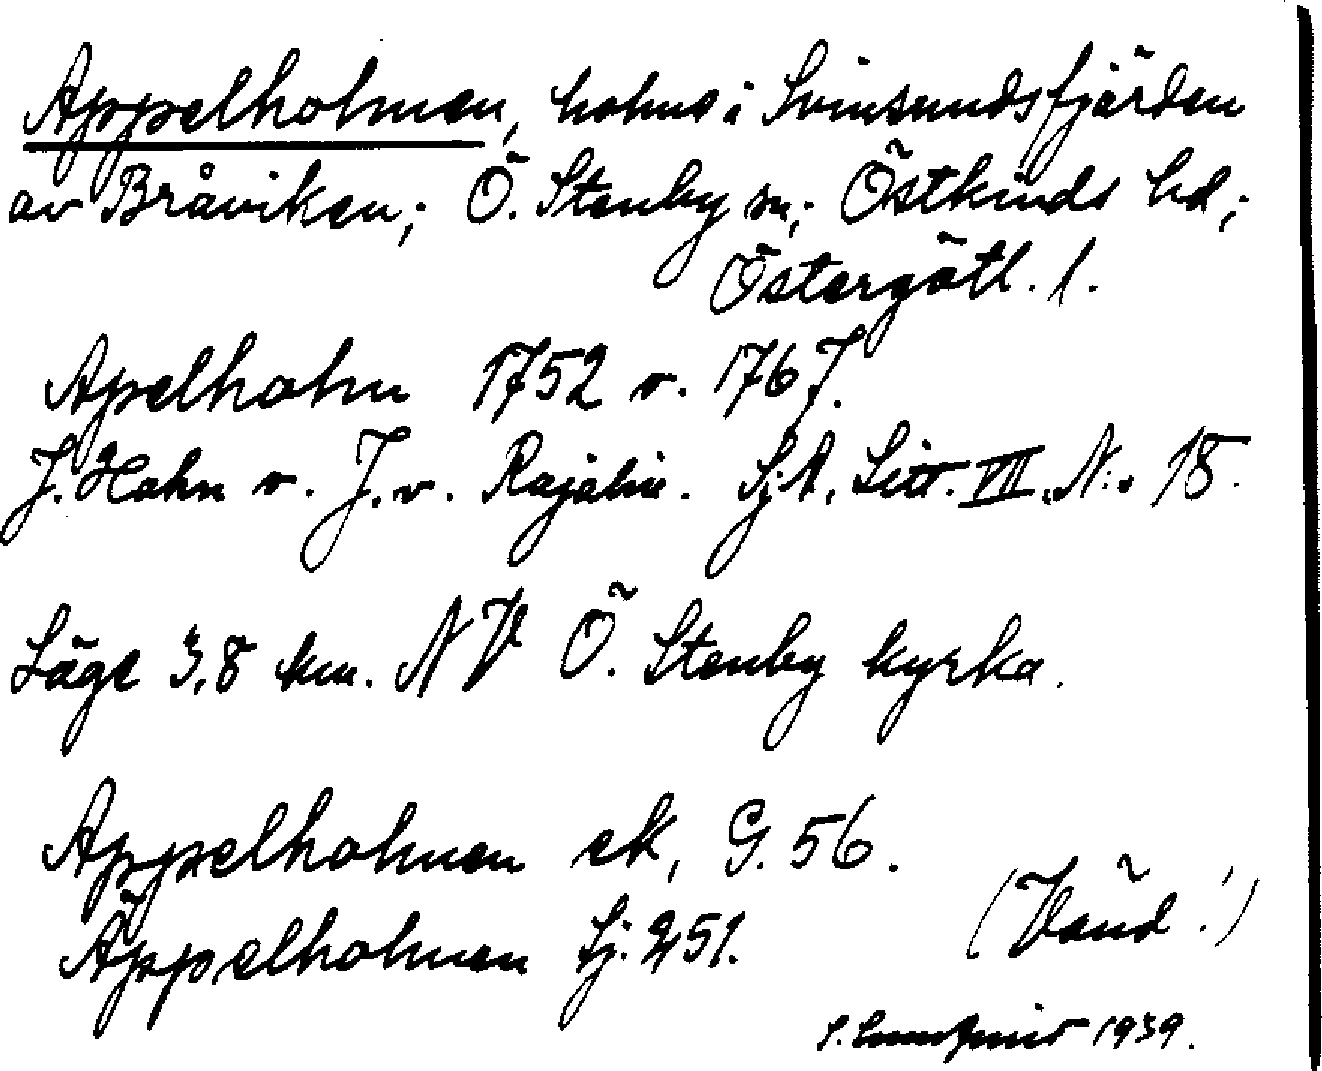 Appelholmen, holme i Svinsundsfjärden
av Bråviken; Ö. Stenby sn; Östkinds hd;
Östergötl. l.
Apelholm 1752 o. 1767.
J. Hahn o. J. v. Rajalin. Sj.A. Litt. VII. N:o 18.
Läge 3,8 km. NV Ö. Stenby kyrka.
Appelholmen ek, G. 56.
Äppelholmen Sj. 251.
(Vänd!)
S. 1939.